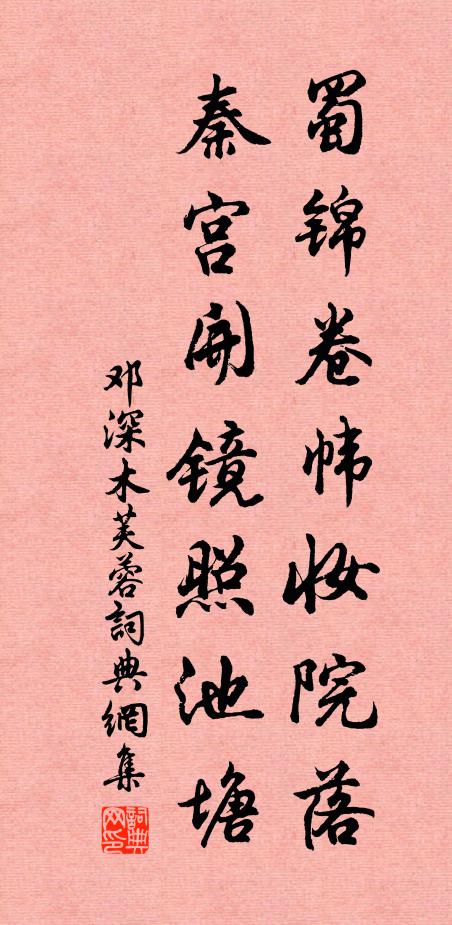 蜀锦卷帏妆院落
秦宫开镜照池塘
邓深木芙蓉詞典網集
詞典网印